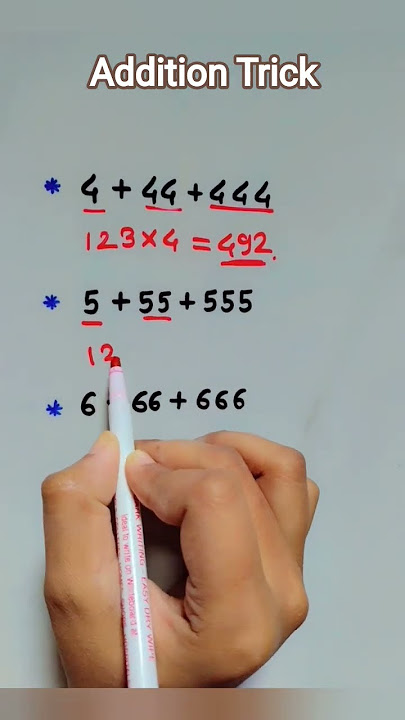 Addition Trick
* 4 + 44 + 444
123 × 4 = 492.
* 5 + 55 + 555
12
* 6 66 + 666
EASY DRY WIPE